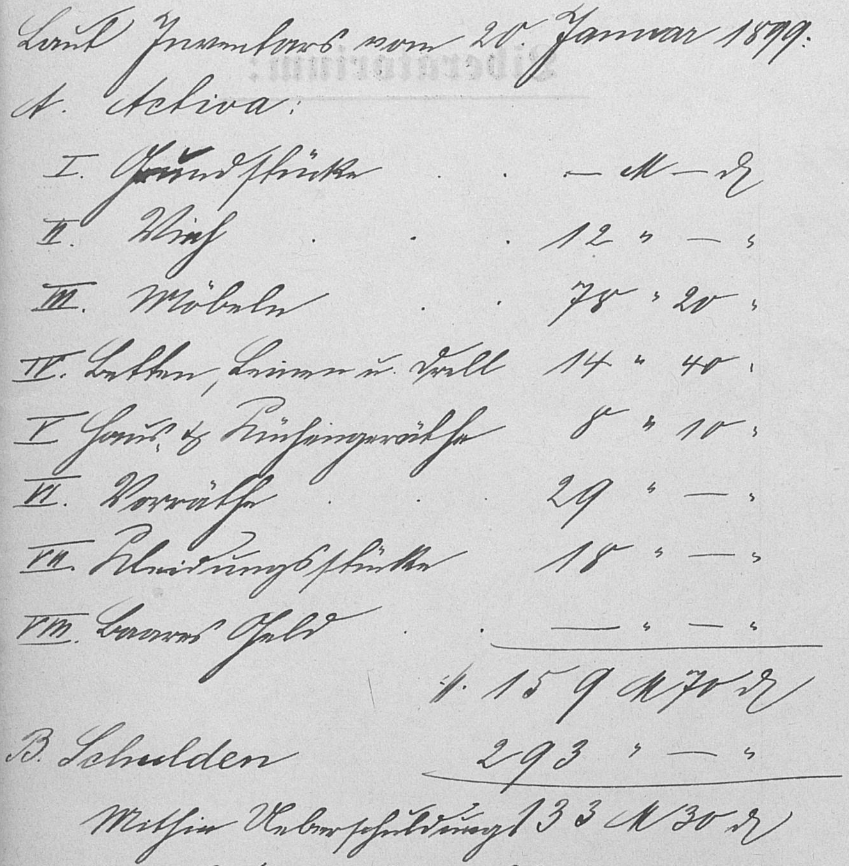 Laut Inventars vom 20. Januar 1899:
A. Activa:
I. Grundstücke . . — M — ₰
II. Vieh . . . 12 " — "
III. Möbeln . . 78 " 20 "
IV. Betten, Leinen u. Drell 14 " 40 "
V Haus- & Küchengeräthe 8 " 10 "
VI. Vorräthe . . . 29 " — "
VII. Kleidungsstücke 18 " — "
VIII. Baares Geld . . — " — "
//. 159 M 70 ₰
B. Schulden 293 " — "
Mithin Ueberschuldung 133 M 30 ₰
Liberatorium: